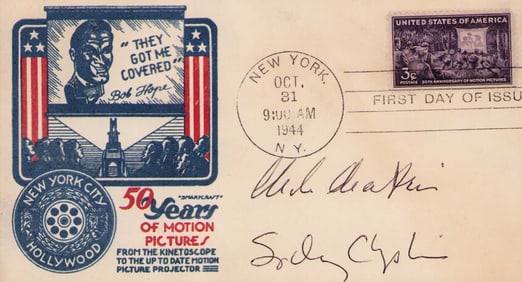 "THEY
GOT ME
COVERED"
Bob Hope
NEW YORK CITY
HOLLYWOOD
"SMARTCRAFT"
50 Years
OF MOTION
PICTURES
FROM THE KINETOSCOPE
TO THE UP TO DATE MOTION
PICTURE PROJECTOR
NEW YORK,
OCT.
31
9:00 AM
1944
N. Y.
UNITED STATES OF AMERICA
3¢
POSTAGE
50TH ANNIVERSARY OF MOTION PICTURES
FIRST DAY OF ISSU
Sydney Chaplin